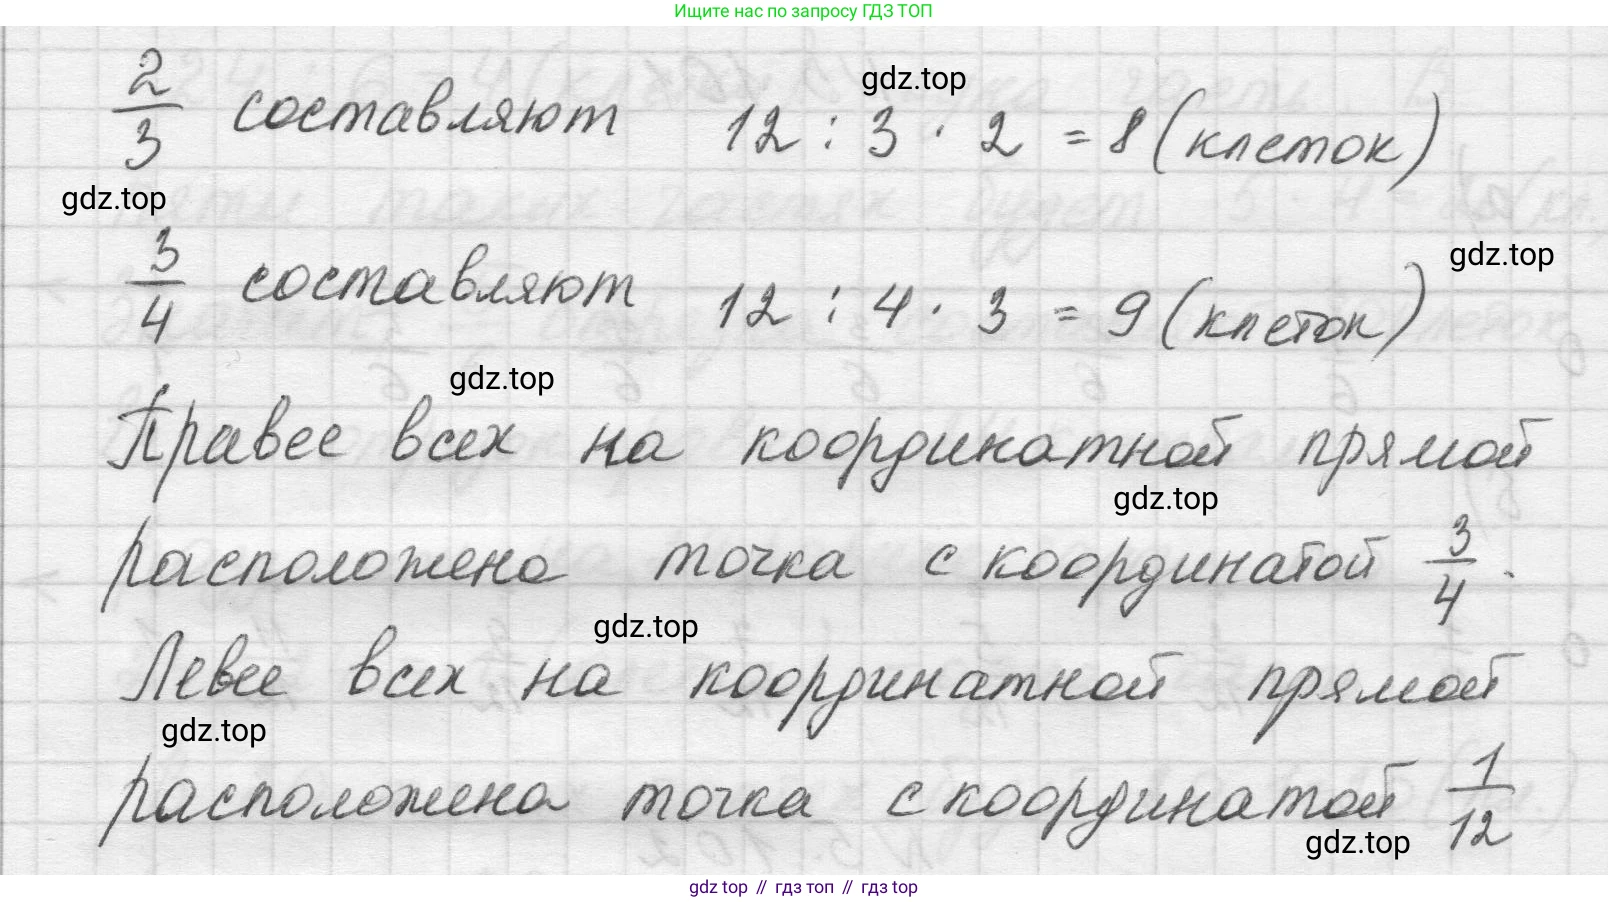 Ищите нас по запросу ГДЗ ТОП
gdz.top
2/3 составляют 12 : 3 · 2 = 8 (клеток)
gdz.top
gdz.top
3/4 составляют 12 : 4 · 3 = 9 (клеток)
gdz.top
Правее всех на координатной прямой
gdz.top
расположена точка с координатой 3/4.
gdz.top
Левее всех на координатной прямой
gdz.top
расположена точка с координатой 1/12
gdz.top
gdz top // гдз топ // gdz top